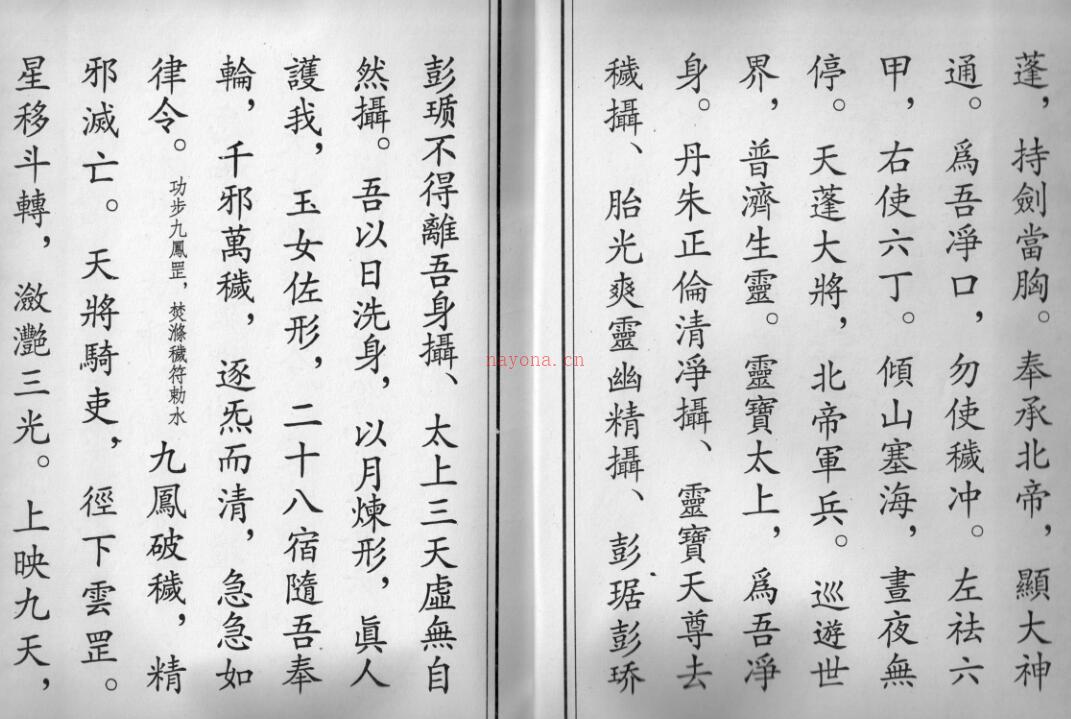 蓬，持劍當胸。奉承北帝，顯大神
通。爲吾凈口，勿使穢冲。左祛六
甲，右使六丁。傾山塞海，晝夜無
停。天蓬大將，北帝軍兵。巡遊世
界，普濟生靈。靈寶太上，爲吾凈
身。丹朱正倫清凈攝、靈寶天尊去
穢攝、胎光爽靈幽精攝、彭琚彭琇
彭瑣不得離吾身攝、太上三天虛無自
然攝。吾以日洗身，以月煉形，眞人
護我，玉女佐形，二十八宿隨吾奉
輪，千邪萬穢，逐炁而清，急急如
律令。功步九鳳罡，焚滌穢符勅水 九鳳破穢，精
邪滅亡。天將騎吏，徑下雲罡。
星移斗轉，瀲灧三光。上映九天，
nayona.cn